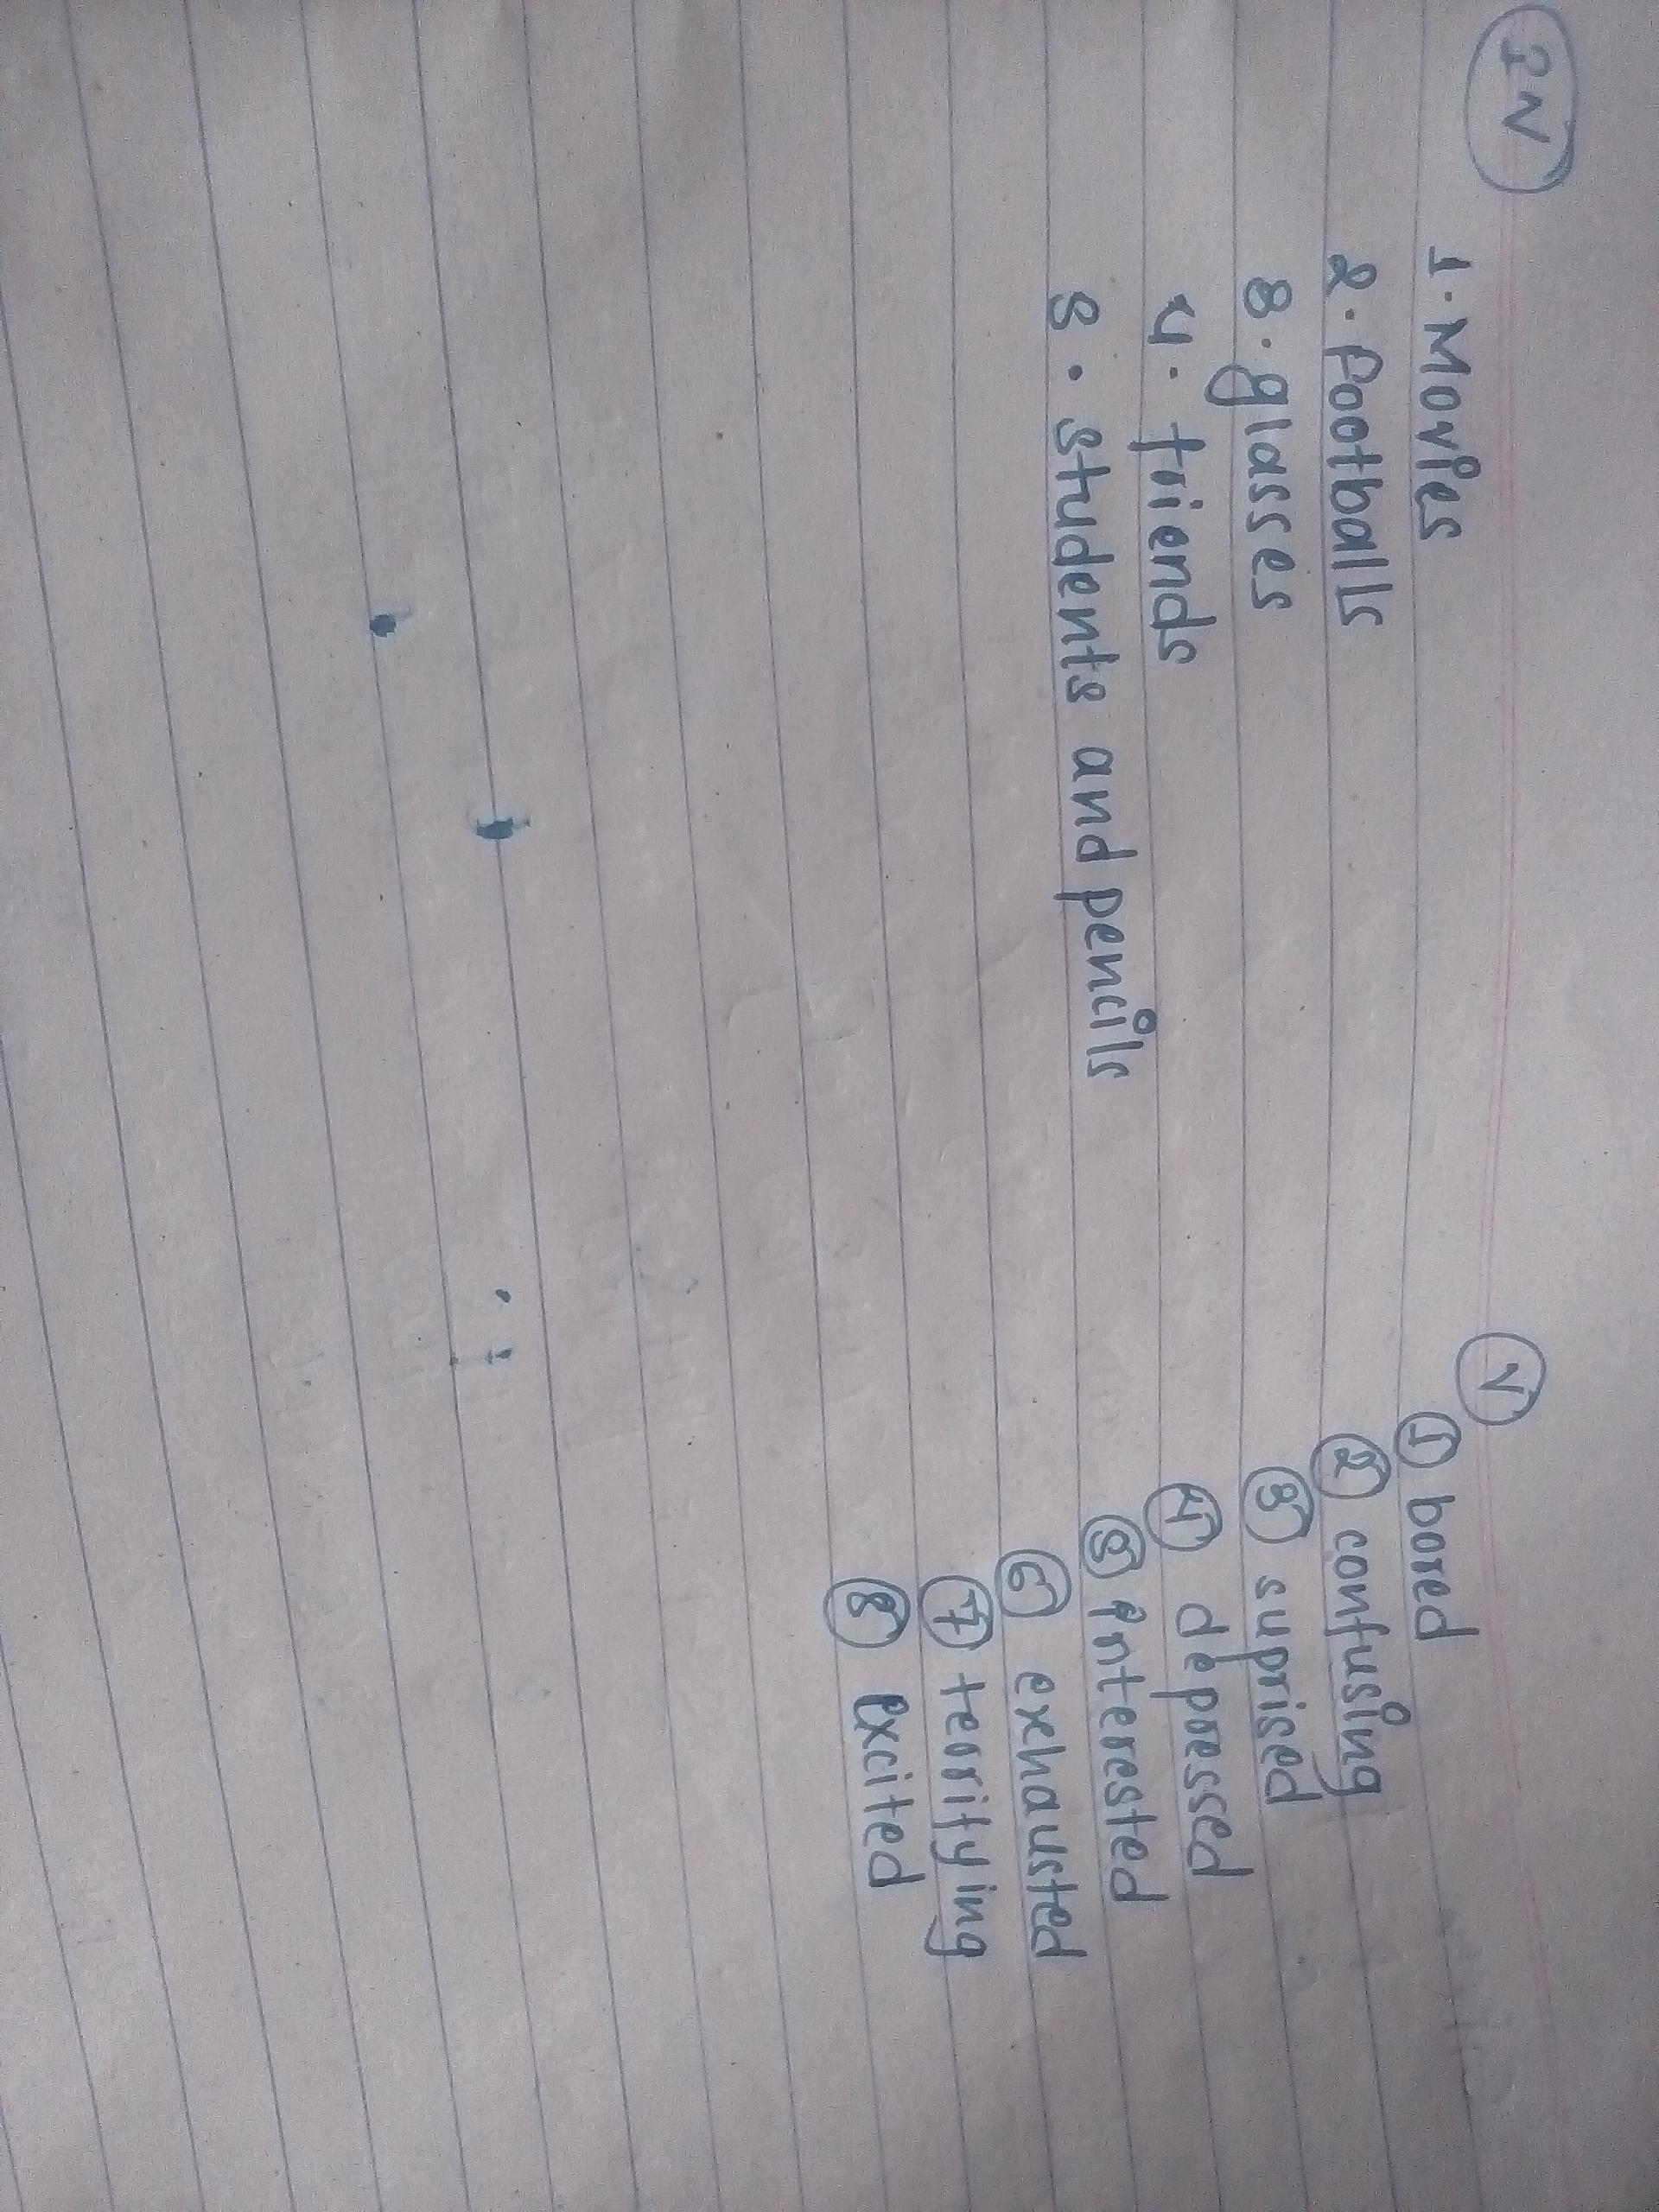 IV
1. Movies
2. footballs
3. glasses
4. friends
5. students and pencils
V
1 bored
2 confusing
3 suprised
4 depressed
5 interested
6 exhausted
7 terrifying
8 excited